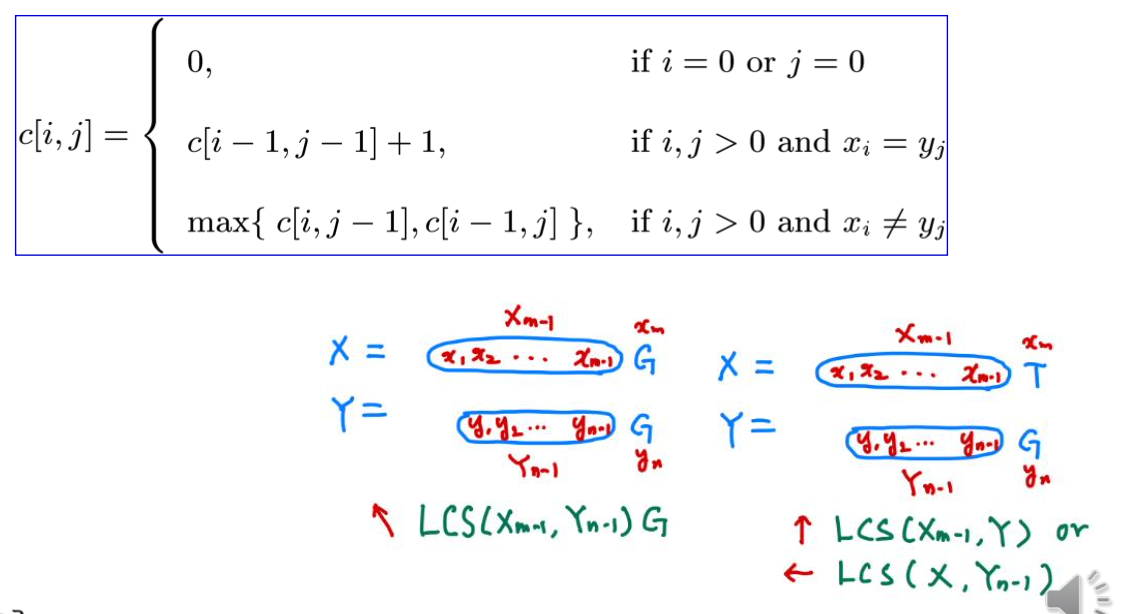 c[i, j] =
0, if i = 0 or j = 0
c[i − 1, j − 1] + 1, if i, j > 0 and xᵢ = yⱼ
max{ c[i, j − 1], c[i − 1, j] }, if i, j > 0 and xᵢ ≠ yⱼ
Xm-1 xm
X = x₁ x₂ ... xm-1 G
Y = y₁ y₂ ... yn-1 G
Yn-1 yn
↖ LCS(Xm-1, Yn-1) G
Xm-1 xm
X = x₁ x₂ ... xm-1 T
Y = y₁ y₂ ... yn-1 G
Yn-1 yn
↑ LCS(Xm-1, Y) or
← LCS(X, Yn-1)